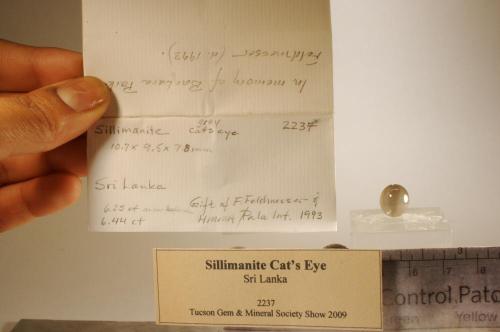 In memory of Barbara
Feldmesser (d. 1992).
gray
Sillimanite cat's eye 2237
10.7 x 9.5 x 7.8 mm
Sri Lanka
6.25 ct
6.44 ct
Gift of F. Feldmesser &
Pala Int. 1993
Sillimanite Cat's Eye
Sri Lanka
2237
Tucson Gem & Mineral Society Show 2009
3
Control Patc
Yellow